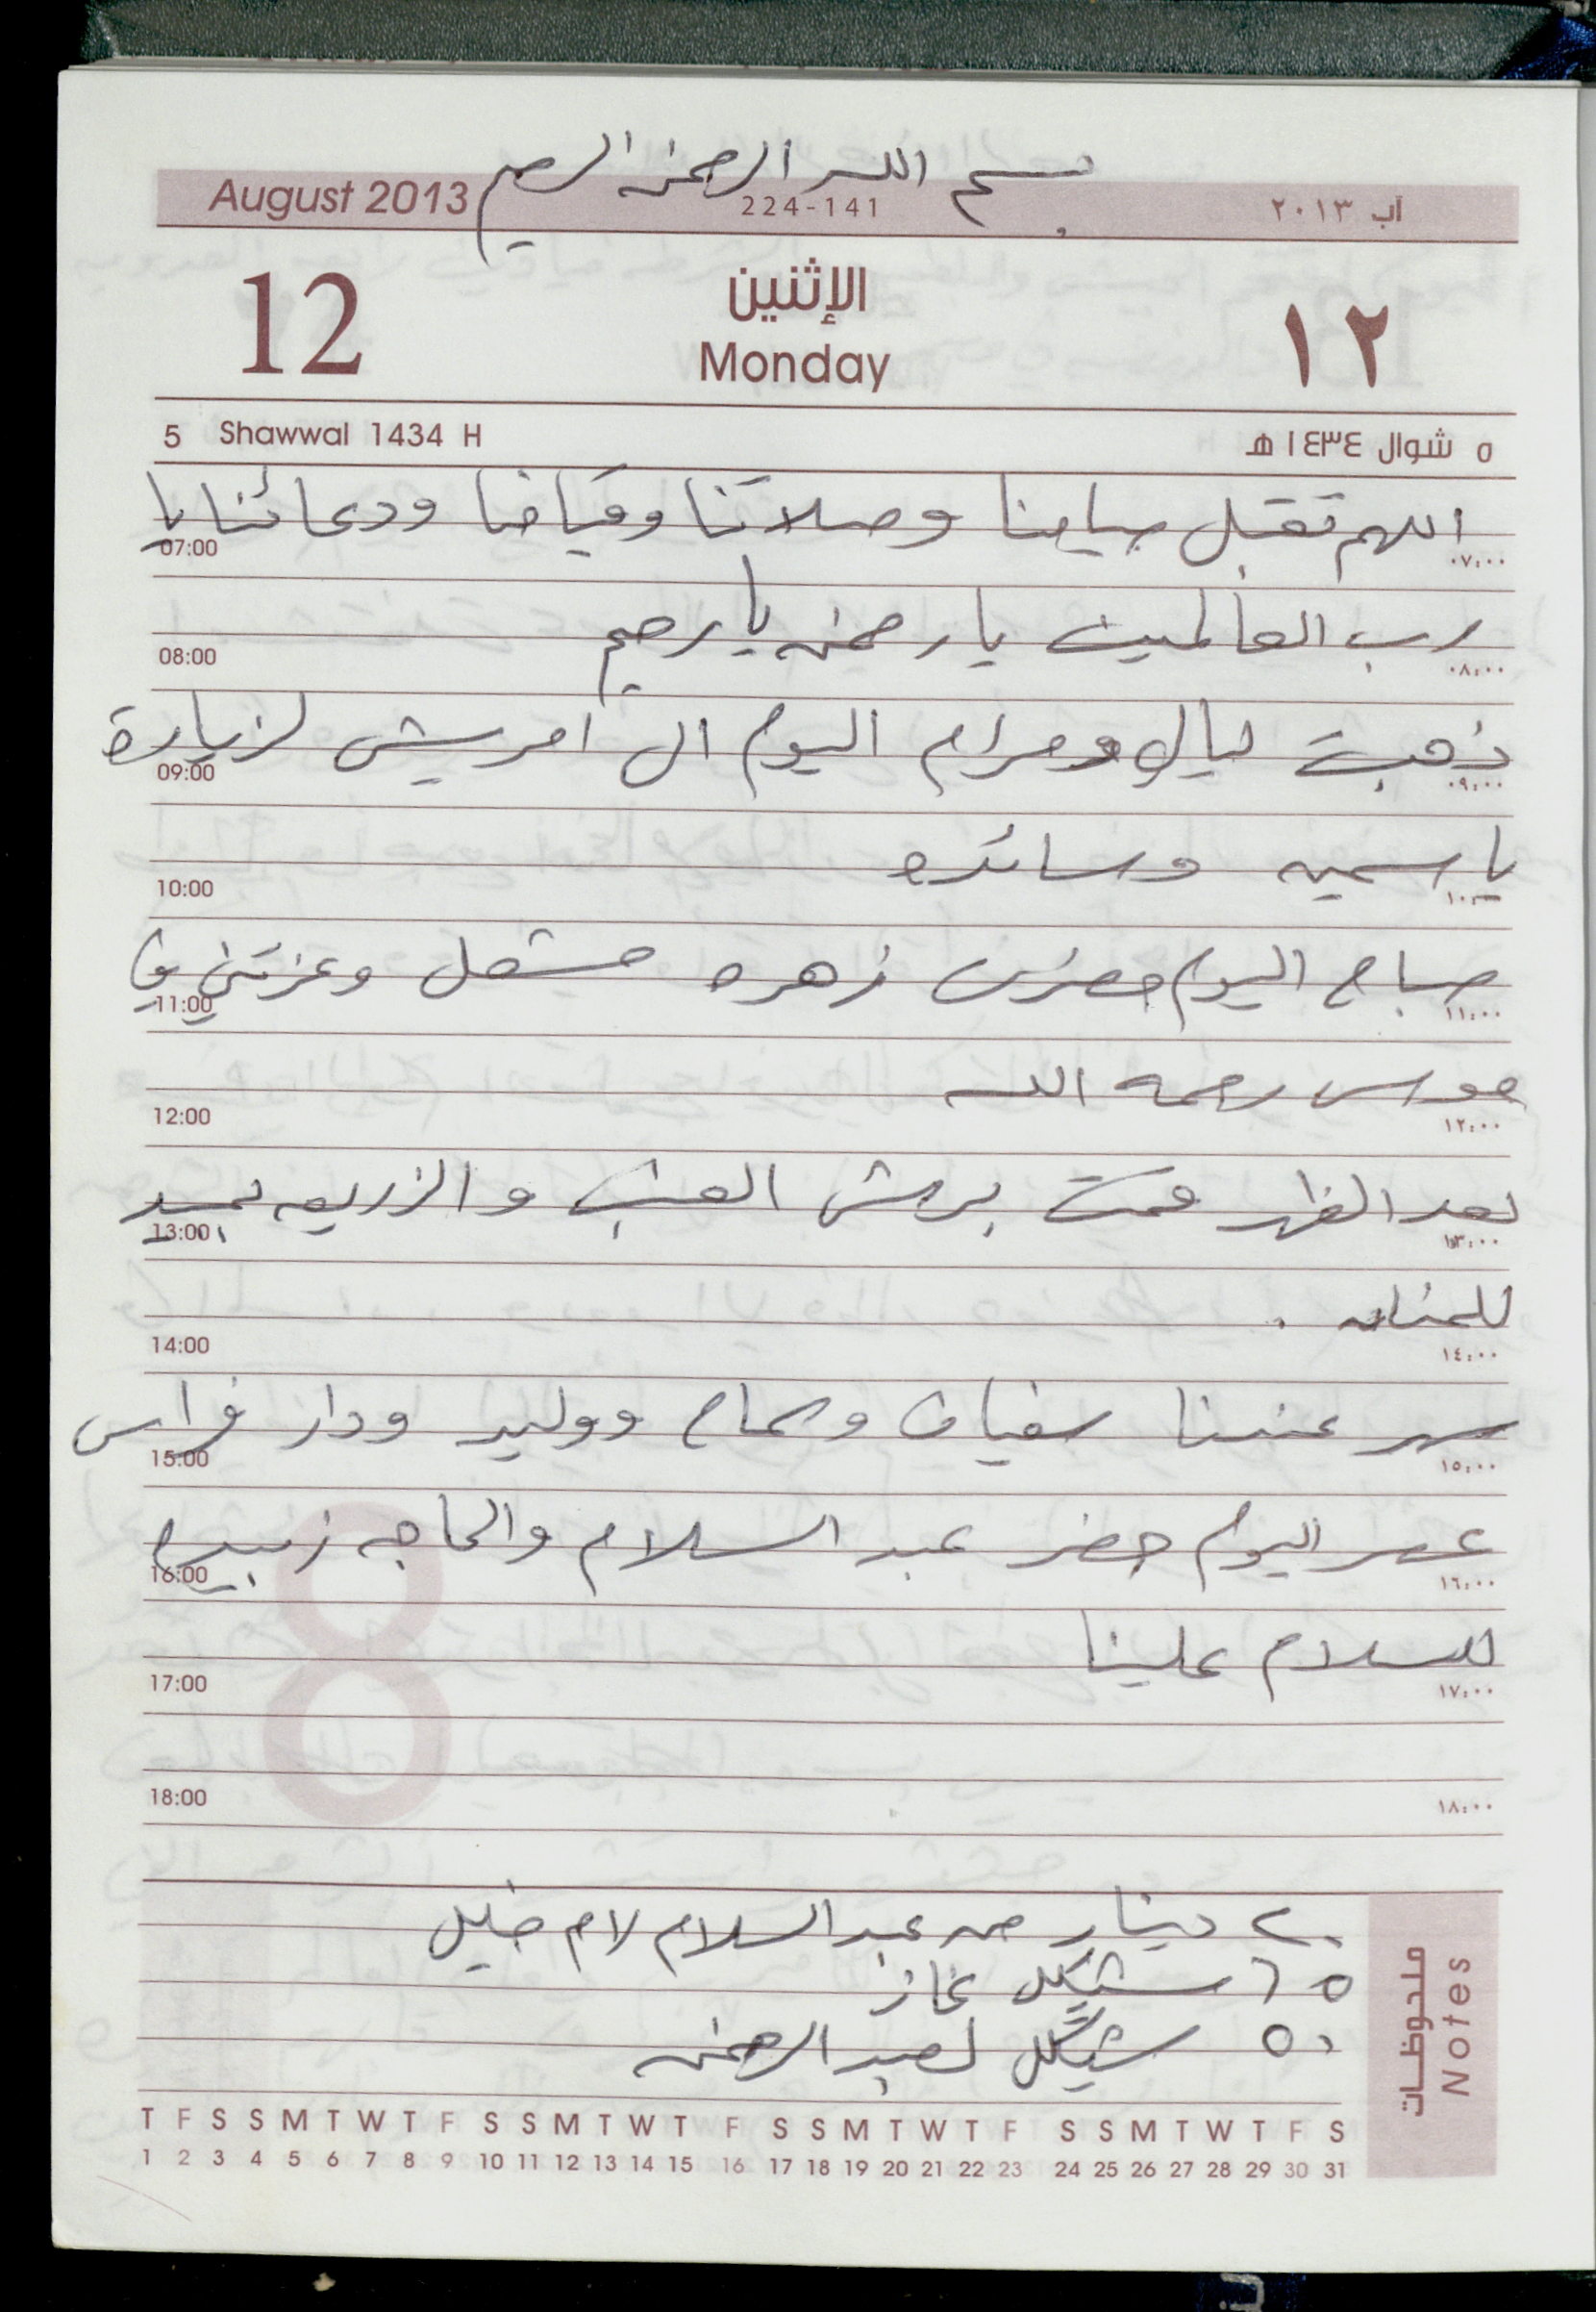 بسم الله الرحمن الرحيم
August 2013 224-141 آب ٢٠١٣
12 الإثنين ١٢
Monday
5 Shawwal 1434 H ٥ شوال ١٤٣٤ هـ
اللهم تقبل صيامنا وصلاتنا وقيامنا ودعائنا يا
07:00 ٠٧:٠٠
رب العالمين يا رحمن يا رحيم
08:00 ٠٨:٠٠
ذهبت ليال ومرام اليوم ال امريش لزيارة
09:00 ٠٩:٠٠
ياسمين وسائده
10:00 ١٠:٠٠
صباح اليوم حضرت زهره مشعل وعزتني في
11:00 ١١:٠٠
رحمه الله
12:00 ١٢:٠٠
بعد الظهر قمت برش العنب والزريعه
13:00 ١٣:٠٠
14:00 ١٤:٠٠
سهر عندنا سفيان وسماح ووليد ودار فراس
15:00 ١٥:٠٠
عصر اليوم حضر عبد السلام والحاجه زبيده
16:00 ١٦:٠٠
للسلام علينا
17:00 ١٧:٠٠
18:00 ١٨:٠٠
ملحوظات Notes
٢٠ دينار من عبد السلام لام خليل
٦٥ شيكل غاز
٥٠ شيكل لعبد الرحمن
T F S S M T W T F S S M T W T F S S M T W T F S S M T W T F S
1 2 3 4 5 6 7 8 9 10 11 12 13 14 15 16 17 18 19 20 21 22 23 24 25 26 27 28 29 30 31